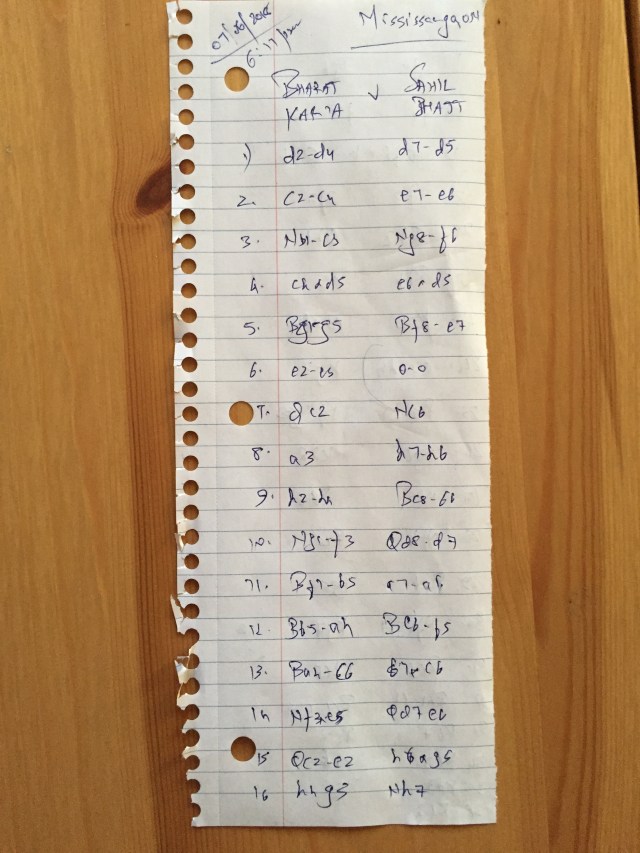 07/26/2016 Mississauga ON
6:17 pm
BHARAT v SAHIL
BHATT
1) d2-d4 d7-d5
2. c2-c4 e7-e6
3. Nb1-c3 Ng8-f6
4. c4xd5 e6xd5
5. Bg5 Bf8-e7
6. e2-e3 0-0
7. Qc2 Nc6
8. a3 h7-h6
9. h2-h4 Bc8-e6
10. Ng1-f3 Qd8-d7
11. Bf1-b5 a7-a6
12. Bb5-a4 Be6-f5
13. Ba4-c6 b7xc6
14 Nf3xe5 Qd7 e6
15 Qc2-e2 h6xg5
16 h4g5 Nh7